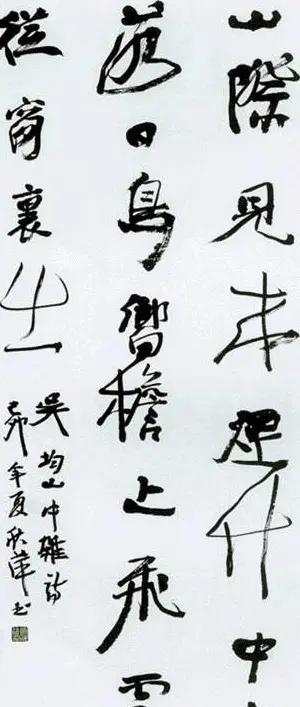 山際見来煙竹中
落日鳥嚮檐上飛雲
從窗裏出
吳均山中雜詩
己卯年夏書